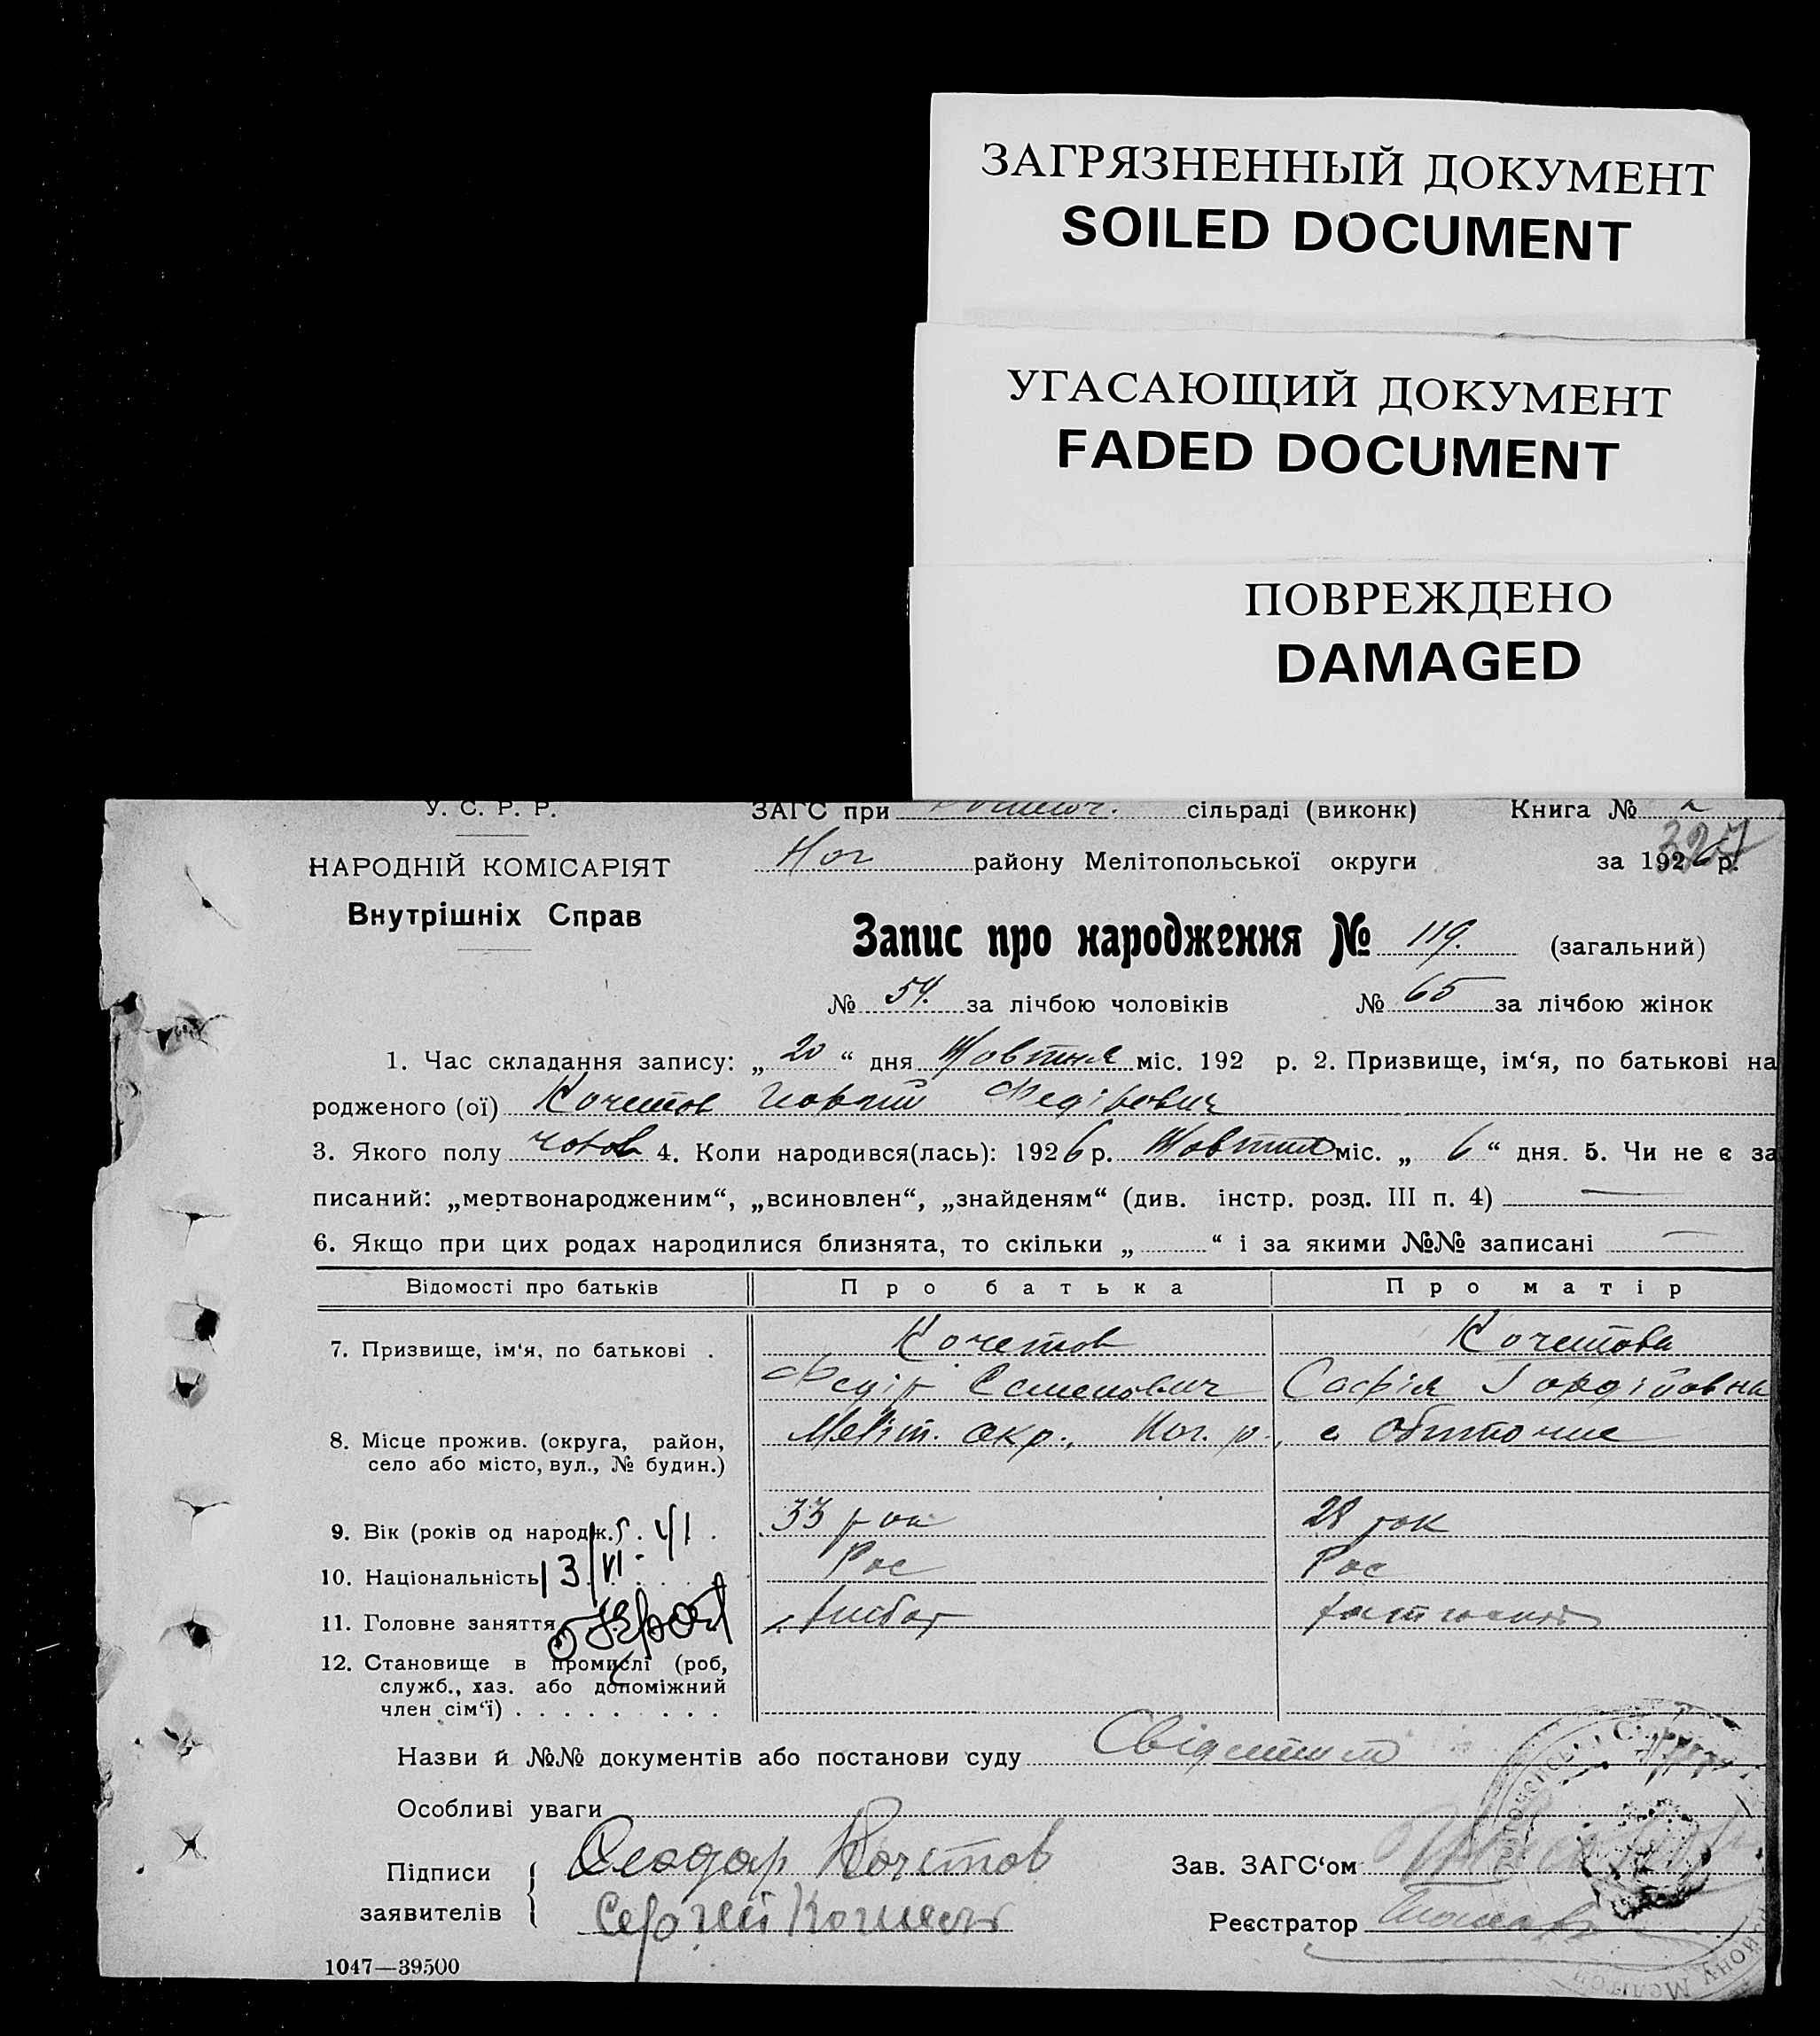 ЗАГРЯЗНЕННЫЙ ДОКУМЕНТ
SOILED DOCUMENT
УГАСАЮЩИЙ ДОКУМЕНТ
FADED DOCUMENT
ПОВРЕЖДЕНО
DAMAGED
У. С. Р. Р.
ЗАГС при сільраді (виконк) Книга № 2
НАРОДНІЙ КОМІСАРІЯТ
Внутрішніх Справ
Ног району Мелітопольської округи за 1926 р.
327
Запис про народження № 119. (загальний)
№ 54. за лічбою чоловіків № 65 за лічбою жінок
1. Час складання запису: „20“ дня Жовтня міс. 192 р. 2. Призвище, ім‘я, по батькові на
родженого (ої) Кочетов Федірович
3. Якого полу чолов 4. Коли народився(лась): 1926 р. Жовтня міс. „ 6 “ дня. 5. Чи не є за
писаний: „мертвонародженим“, „всиновлен“, „знайденям“ (див. інстр. розд. III п. 4) —
6. Якщо при цих родах народилися близнята, то скільки „ “ і за якими №№ записані —
Відомості про батьків Про батька Про матір
7. Призвище, ім‘я, по батькові . Кочетов Кочетова
Федір Семенович Софія Гордійовна
8. Місце прожив. (округа, район, Меліт. окр., Ног. р., с. Обиточне
село або місто, вул., № будин.)
9. Вік (років од народж.) 33 рок 28 рок
10. Національність Рос Рос
13/VI 41
11. Головне заняття
12. Становище в промислі (роб,
служб., хаз. або допоміжний
член сім‘ї) . . . . . . . .
Назви й №№ документів або постанови суду
Особливі уваги
Підписи Феодор Кочетов Зав. ЗАГС‘ом
заявителів Сергей Кочетов Реєстратор
1047—39500